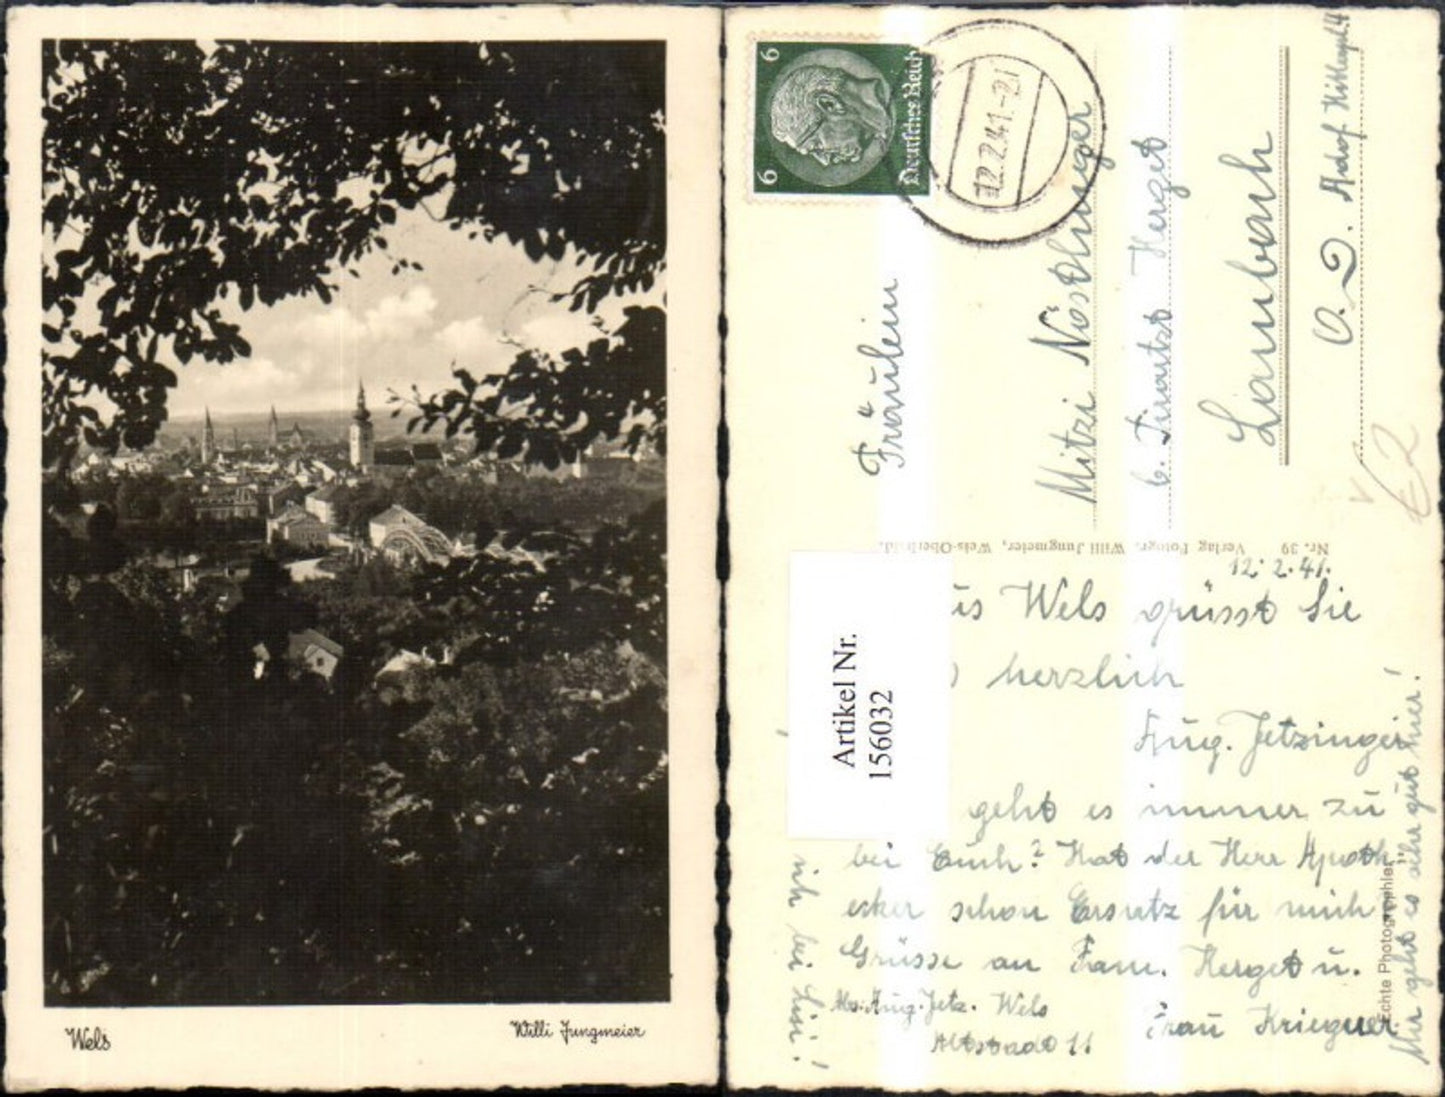 Wels
Willi Jungmeier
6
6
Deutsches Reich
12.2.41-21
Fräulein
Mitzi Nöstlinger
b. Herget
Lambach
O. D. Adolf Hitlerpl. 4
€2
Nr. 39 Verlag Fotogr. Willi Jungmeier, Wels-
12.2.41.
us Wels grüsst Sie
herzlich
Aug. Jetzinger
geht es immer zu
bei Euch? Hat der Herr Apoth
eker schon Ersatz für mich
Grüsse an Fam. Herget u.
Frau Kriegner
Abs: Aug. Jetz. Wels
Altstadt 11
Mir geht es sehr gut hier!
Echte Photographie
Artikel Nr.
156032